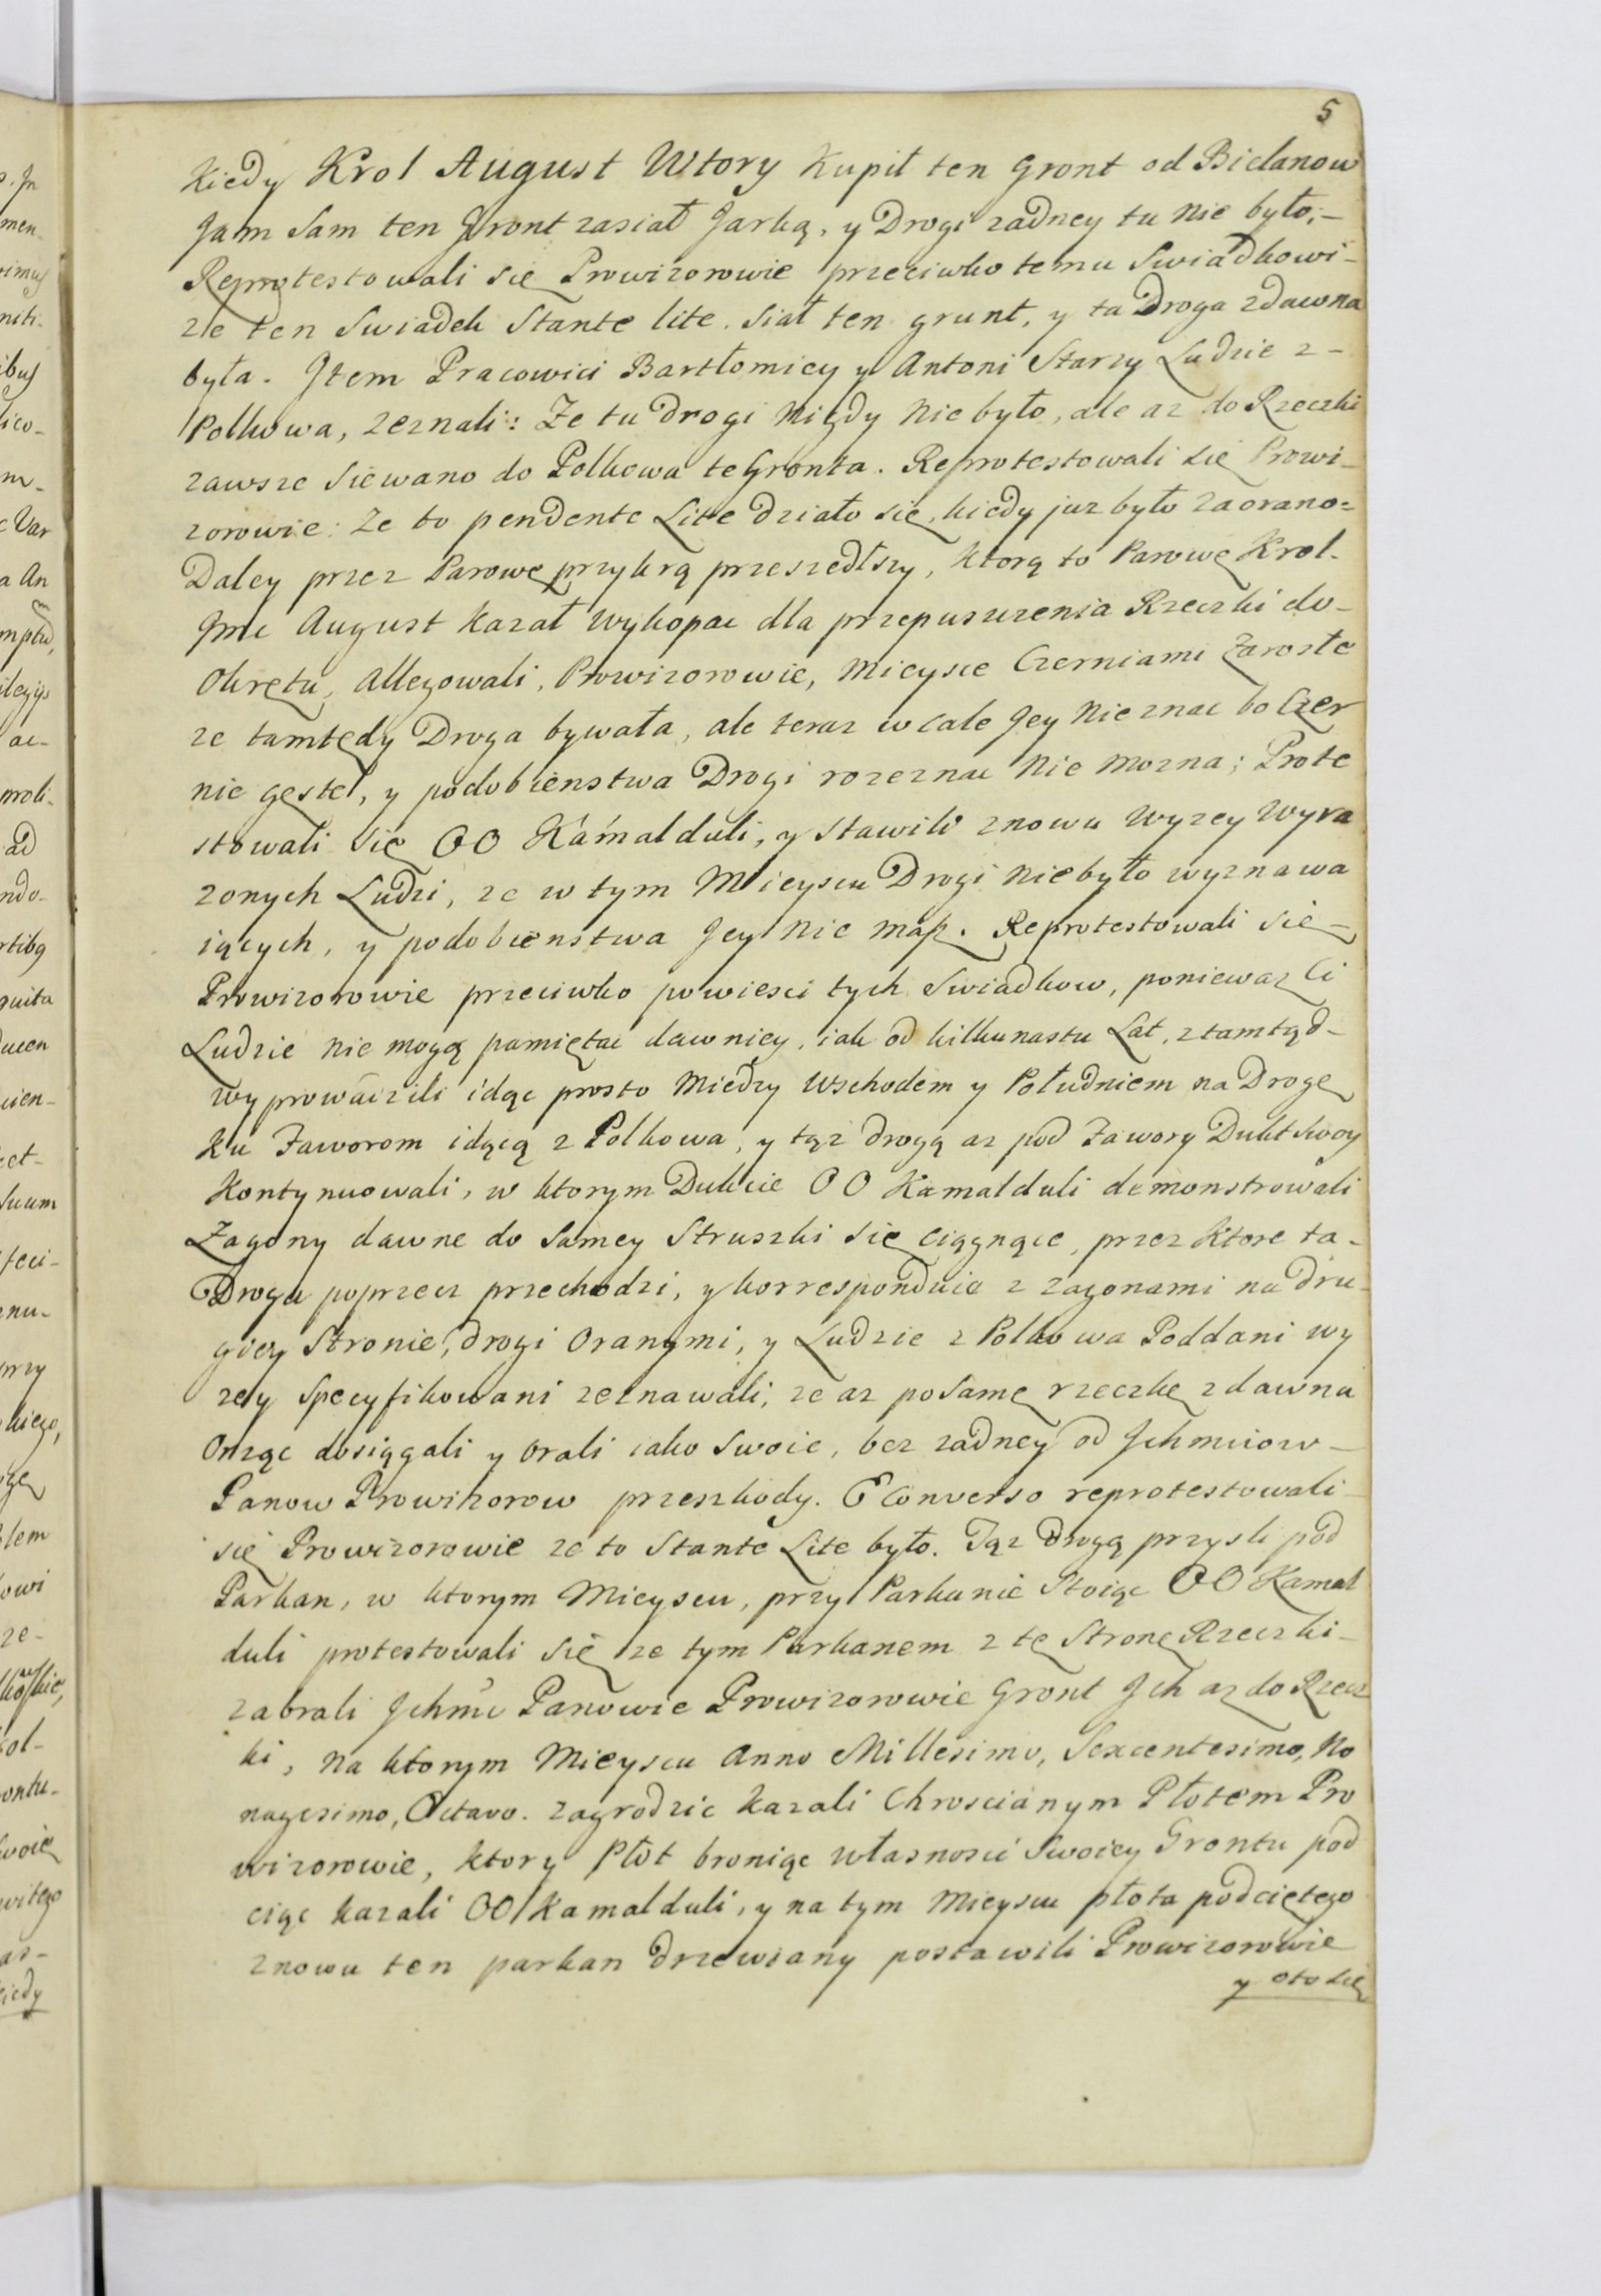 5
Kiedy Krol August Wtory Kupił ten Gront od Bielanow
Jam Sam ten Gront zasiał Jarką, y Drogi zadney tu nie było;—
Reprotestowali się Prowizorowie przeciwko temu Swiadkowi-
ze ten Swiadek Stante lite. Siał ten grunt, y ta Droga zdawna
była. Item Pracowici Bartłomiey y Antoni Starzy Ludzie z-
Polkowa, zeznali: Ze tu drogi nigdy nie było, ale az do Rzeczki
zawsze siewano do Polkowa te Gronta. Reprotestowali się Prowi-
zorowie: Ze to pendente Lite działo się, kiedy juz było zaorano=
Daley przez Parowę przykrą przeszedłszy, ktorą to Parowę Krol-
Jmc August kazał wykopac dla przepuszczenia Rzeczki do-
Okrętu, Allegowali, Prowizorowie, Mieysce Czerniami Zarosłe
ze tamtędy Droga bywała, ale teraz wcale Jey nie znac bo Czer
nie gęste, y podobienstwa Drogi rozeznac nie mozna; Prote
stowali się OO Kamalduli, y stawili znowu wyzey wyra
zonych Ludzi, ze w tym Mieyscu Drogi nie było wyznawa
iących, y podobienstwa Jey nie masz. Reprotestowali się-
Prowizorowie przeciwko powiesci tych Swiadkow, poniewaz Ci
Ludzie nie mogą pamiętac dawniey, iak od kilkunastu Lat, ztamtąd-
wyprowadzili idąc prosto Miedzy Wschodem y Południem na Drogę
ku Zaworom idącą z Polkowa, y tąz drogą az pod Zawory Dukt swoy
Kontynuowali, w ktorym Dukcie OO Kamalduli demonstrowali
Zagony dawne do samey Struszki się ciągnące, przez ktore ta-
Droga poprzecz przechodzi, y korresponduie z zagonami na dru-
giey Stronie, drogi Oranymi, y Ludzie z Polkowa Poddani wy
zey specyfikowani zeznawali; ze az po samę rzeczkę zdawna
Orząc dosiągali y orali iako swoie, bez zadney od Jchmciow-
Panow Prowizorow przeszkody. E Converso reprotestowali-
się Prowizorowie ze to Stante Lite było. Tąz Drogą przysli pod
Parkan, w ktorym Mieyscu, przy Parkanie Stoiąc OO Kamal
duli protestowali się ze tym Parkanem z tę Stronę Rzeczki-
zabrali Jchmć Panowie Prowizorowie Gront Jch az do Rzecz
ki, na ktorym Mieyscu Anno Millesimo, Sexcentesimo, No
nagesimo, Octavo. zagrodzic kazali Chroscianym Płotem Pro
wizorowie, ktory Płot broniąc własnosci Swoiey Grontu pod
ciąc kazali OO Kamalduli, y na tym Mieyscu płota podciętego
znowu ten parkan drzewiany postawili Prowizorowie
y oto się